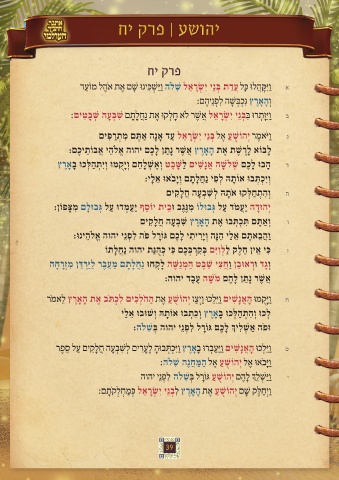 יהושע | פרק יח
פרק יח
א וַיִּקָּהֲלוּ כָּל עֲדַת בְּנֵי יִשְׂרָאֵל שִׁלֹה וַיַּשְׁכִּינוּ שָׁם אֶת אֹהֶל מוֹעֵד
וְהָאָרֶץ נִכְבְּשָׁה לִפְנֵיהֶם:
ב וַיִּוָּתְרוּ בִּבְנֵי יִשְׂרָאֵל אֲשֶׁר לֹא חָלְקוּ אֶת נַחֲלָתָם שִׁבְעָה שְׁבָטִים:
ג וַיֹּאמֶר יְהוֹשֻׁעַ אֶל בְּנֵי יִשְׂרָאֵל עַד אָנָה אַתֶּם מִתְרַפִּים
לָבוֹא לָרֶשֶׁת אֶת הָאָרֶץ אֲשֶׁר נָתַן לָכֶם יהוה אֱלֹהֵי אֲבוֹתֵיכֶם:
הָבוּ לָכֶם שְׁלֹשָׁה אֲנָשִׁים לַשָּׁבֶט וְאֶשְׁלָחֵם וְיָקֻמוּ וְיִתְהַלְּכוּ בָאָרֶץ
וְיִכְתְּבוּ אוֹתָהּ לְפִי נַחֲלָתָם וְיָבֹאוּ אֵלָי:
ה וְהִתְחַלְּקוּ אֹתָהּ לְשִׁבְעָה חֲלָקִים
יְהוּדָה יַעֲמֹד עַל גְּבוּלוֹ מִנֶּגֶב וּבֵית יוֹסֵף יַעַמְדוּ עַל גְּבוּלָם מִצָּפוֹן:
וְאַתֶּם תִּכְתְּבוּ אֶת הָאָרֶץ שִׁבְעָה חֲלָקִים
וַהֲבֵאתֶם אֵלַי הֵנָּה וְיָרִיתִי לָכֶם גּוֹרָל פֹּה לִפְנֵי יהוה אֱלֹהֵינוּ:
כִּי אֵין חֵלֶק לַלְוִיִּם בְּקִרְבְּכֶם כִּי כְהֻנַּת יהוה נַחֲלָתוֹ
וְגָד וּרְאוּבֵן וַחֲצִי שֵׁבֶט הַמְנַשֶּׁה לָקְחוּ נַחֲלָתָם מֵעֵבֶר לַיַּרְדֵּן מִזְרָחָה
אֲשֶׁר נָתַן לָהֶם מֹשֶׁה עֶבֶד יהוה:
ח וַיָּקֻמוּ הָאֲנָשִׁים וַיֵּלֵכוּ וַיְצַו יְהוֹשֻׁעַ אֶת הַהֹלְכִים לִכְתֹּב אֶת הָאָרֶץ לֵאמֹר
לְכוּ וְהִתְהַלְּכוּ בָאָרֶץ וְכִתְבוּ אוֹתָהּ וְשׁוּבוּ אֵלַי
וּפֹה אַשְׁלִיךְ לָכֶם גּוֹרָל לִפְנֵי יהוה בְּשִׁלֹה:
ט וַיֵּלְכוּ הָאֲנָשִׁים וַיַּעַבְרוּ בָאָרֶץ וַיִּכְתְּבוּהָ לֶעָרִים לְשִׁבְעָה חֲלָקִים עַל סֵפֶר
וַיָּבֹאוּ אֶל יְהוֹשֻׁעַ אֶל הַמַּחֲנֶה שִׁלֹה:
וַיַּשְׁלֵךְ לָהֶם יְהוֹשֻׁעַ גּוֹרָל בְּשִׁלֹה לִפְנֵי יהוה
וַיְחַלֶּק שָׁם יְהוֹשֻׁעַ אֶת הָאָרֶץ לִבְנֵי יִשְׂרָאֵל כְּמַחְלְקֹתָם:
39